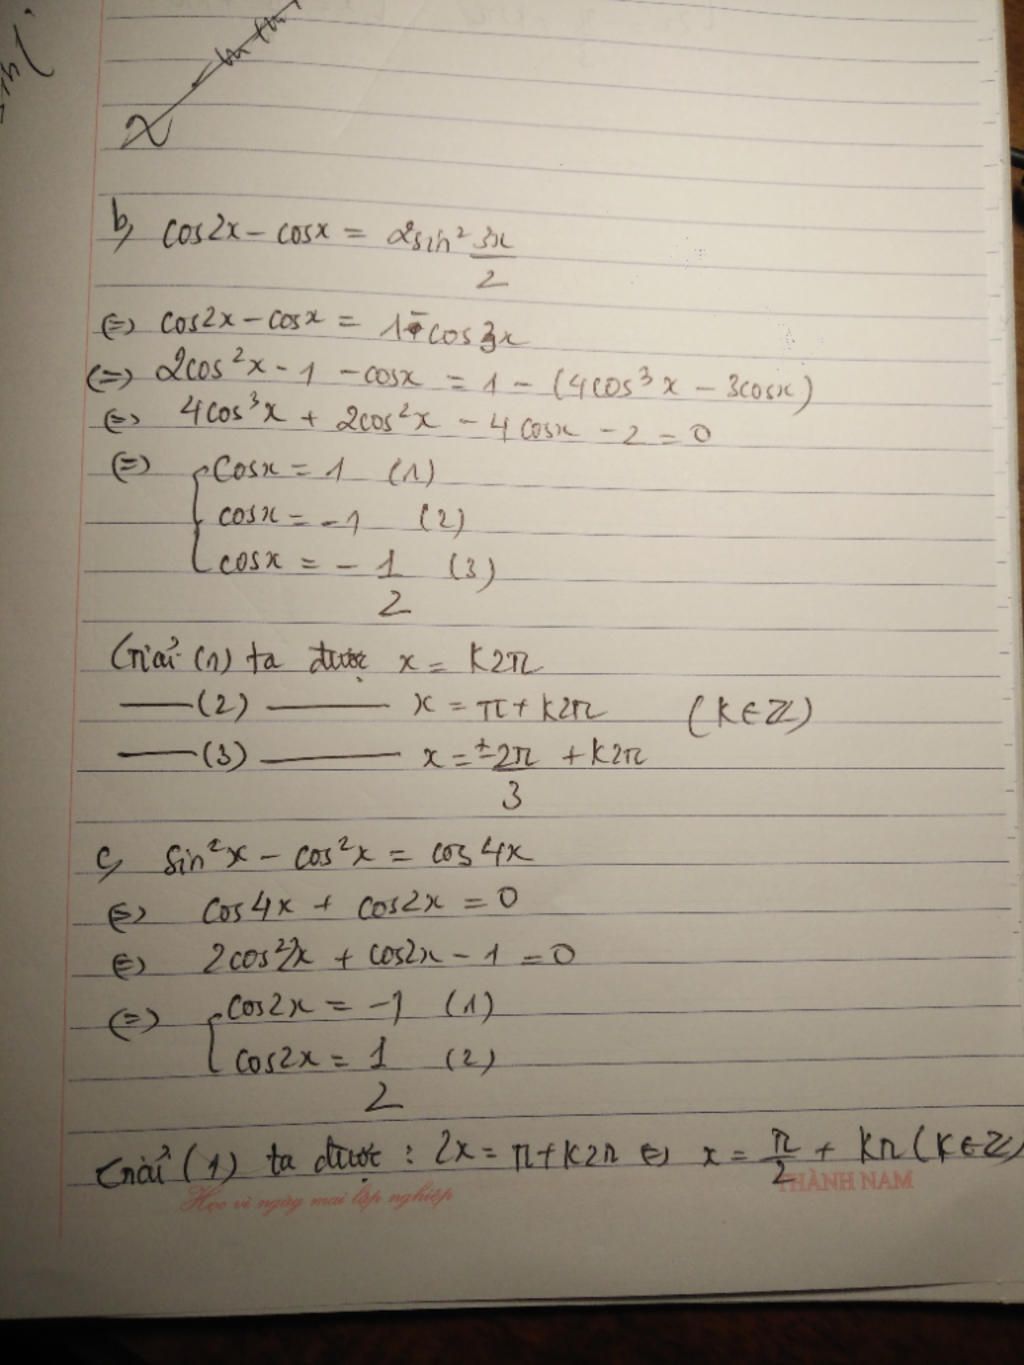 b, cos2x - cosx = 2sin² 3x/2
⇔ cos2x - cosx = 1 - cos3x
⇔ 2cos²x - 1 - cosx = 1 - (4cos³x - 3cosx)
⇔ 4cos³x + 2cos²x - 4cosx - 2 = 0
⇔ [ cosx = 1 (1)
cosx = -1 (2)
cosx = - 1/2 (3)
Giải (1) ta được x = k2π
— (2) — x = π + k2π (k∈ℤ)
— (3) — x = ± 2π/3 + k2π
c, sin²x - cos²x = cos4x
⇔ cos4x + cos2x = 0
⇔ 2cos²2x + cos2x - 1 = 0
⇔ [ cos2x = -1 (1)
cos2x = 1/2 (2)
Giải (1) ta được : 2x = π + k2π ⇔ x = π/2 + kπ (k∈ℤ)
Học vì ngày mai lập nghiệp
THÀNH NAM